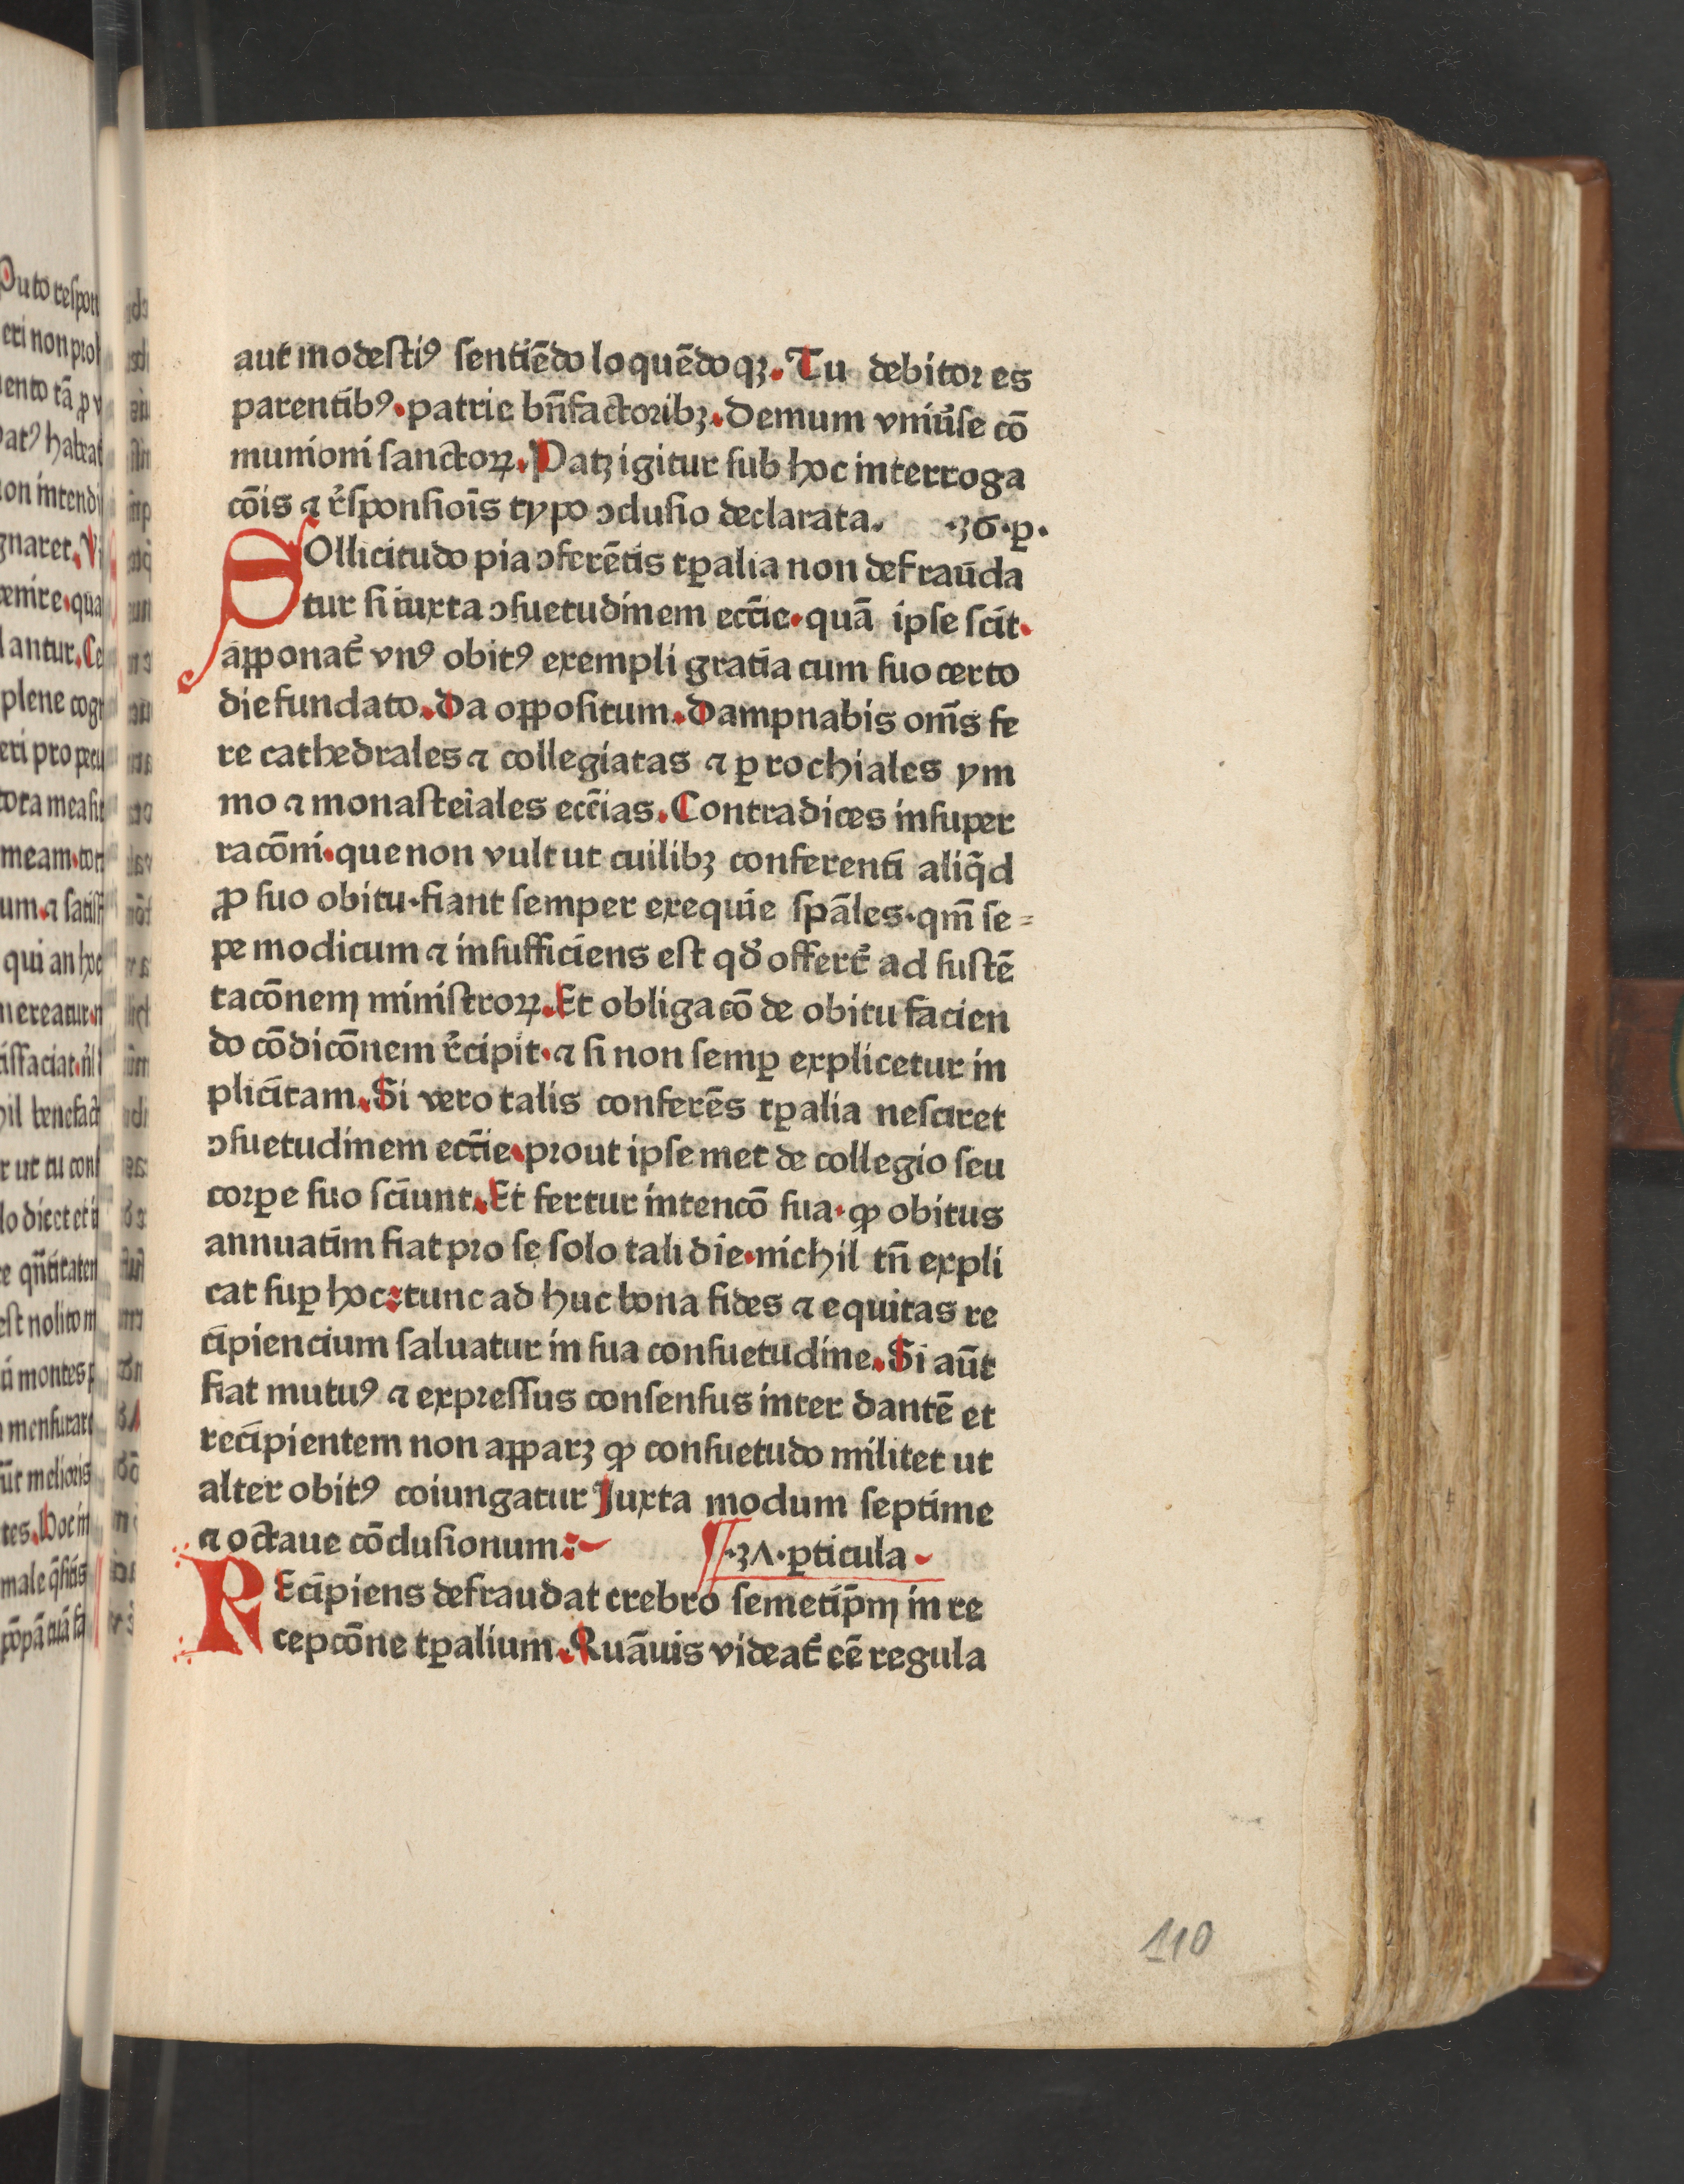 aut modeſtiꝰ ſentiēdo loquēdoqꝫ. Tu debitor es
parentibꝰ. patrie bn̄factoribꝫ. Demum vniůſe cō
munioni ſanctoꝝ. Patꝫ igitur ſub hoc interroga
cōis ⁊ r̓ſponſiōis typo ↄcluſio declarata. ·36·ꝑ·
SOllicitudo pia ↄferētis tꝑalia non defrauda
tur ſi iuxta ↄſuetudinem ecc̄ie. quā ipſe ſcit.
aꝑponat̃ vnꝰ obitꝰ exempli gratia cum ſuo certo
die fundato. Da oꝑpoſitum. Dampnabis om̄s fe
re cathedrales ⁊ collegiatas ⁊ ꝑrochiales ym
mo ⁊ monaſteiales ecc̄ias. Contradices inſuper
racōni. que non vult ut cuilibꝫ conferenti aliq̄d
ꝓ ſuo obitu. fiant ſemper exequie ſpāles. qm̄ ſe=
pe modicum ⁊ inſufficiens eſt qď offert̃ ad ſuſtē
tacōnem miniſtroꝝ. Et obligacō de obitu facien
do cōdicōnem r̓cipit. ⁊ ſi non ſemꝑ explicetur in
plicitam. Si vero talis conferēs tꝑalia neſciret
ↄſuetudinem ecc̄ie. prout ipſemet de collegio ſeu
corꝑe ſuo ſciunt. Et fertur intencō ſua. ꝙ obitus
annuatim fiat pro ſe ſolo tali die. nichil tn̄ expli
cat ſuꝑ hoc: tunc ad huc bona fides ⁊ equitas re
cipiencium ſaluatur in ſua conſuetudine. Si aūt
fiat mutuꝰ ⁊ expreſſus conſenſus inter dantē et
recipientem non aꝑparꝫ ꝙ conſuetudo militet ut
alter obitꝰ coiungatur Juxta modum ſeptime
⁊ octaue cōcluſionum: ¶·3Λ·ꝑticula
REcipiens defraudat crebro ſemetip̄m in re
cepcōne tꝑalium. Quāuis videat̃ eē regula
110